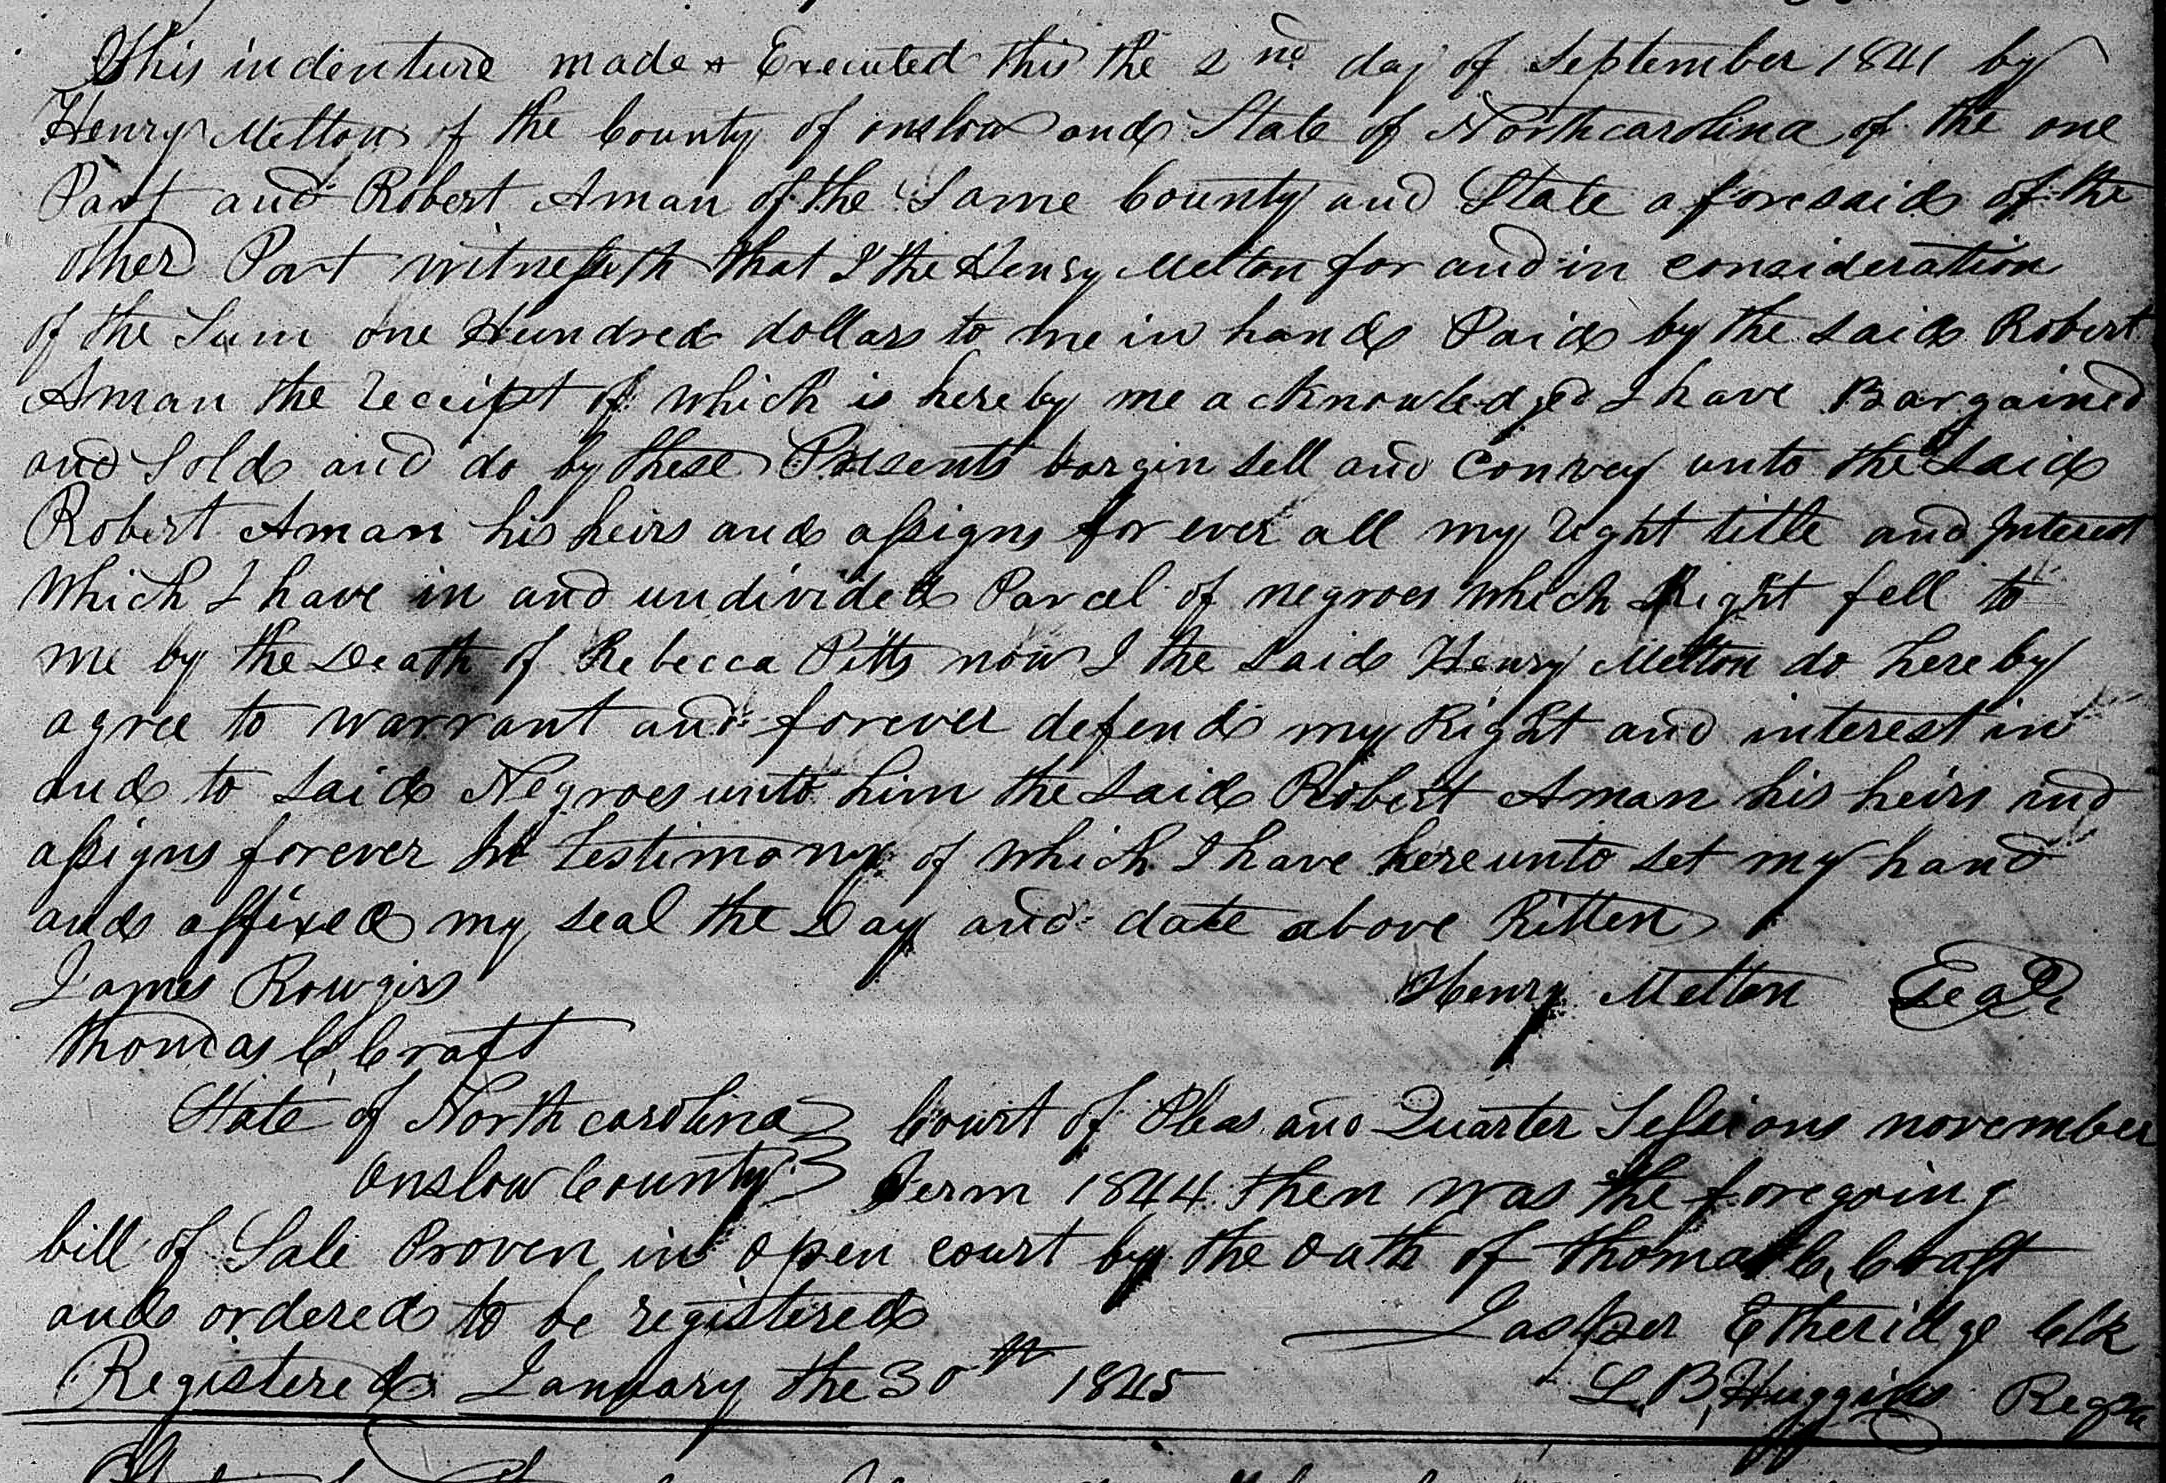 This indenture made & Executed this the 2nd day of September 1841 by
Henry Melton of the County of onslow and State of Northcarolina of the one
Part and Robert Aman of the Same County and State aforesaid of the
other Part witnesseth that I the Henry Melton for and in consideration
of the Sum one Hundred dollars to me in hand Paid by the said Robert
Aman the receipt of which is hereby me acknowledged I have Bargained
and Sold and do by these Presents bargin sell and convey unto the said
Robert Aman his heirs and assigns for ever all my right title and Interest
Which I have in and undivided Parcel of negroes which Right fell to
me by the Death of Rebecca Pitts now I the said Henry Melton do hereby
agree to warrant and forever defend my Right and interest in
and to said Negroes unto him the said Robert Aman his heirs and
assigns forever In testimony of which I have hereunto set my hand
and affixed my seal the Day and date above Ritten
James Rowgirs Henry Melton Seal
Thomas C. Craft
State of North carolina Court of Pleas and Quarter Sessions november
Onslow County Term 1844 then was the foregoing
bill of Sale Proven in open court by the oath of Thomas C. Craft
and ordered to be registered Jasper Etheridge Clk
Registered January the 30th 1845 L. B. Huggins Regr